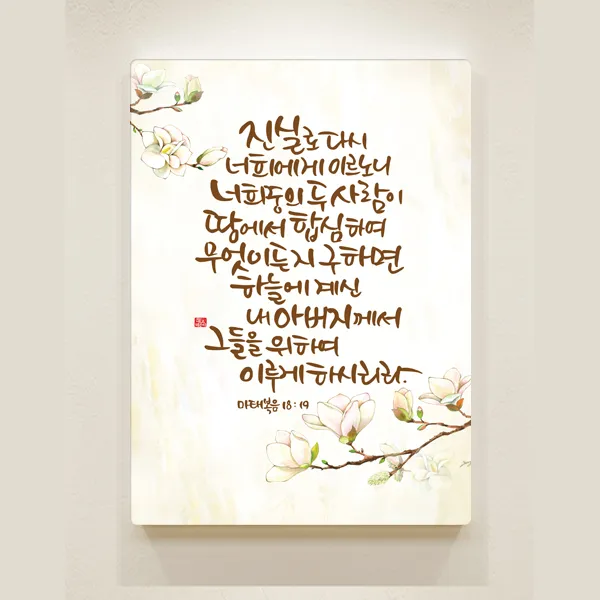 진실로 다시
너희에게 이르노니
너희중의 두 사람이
땅에서 합심하여
무엇이든지 구하면
하늘에 계신
내 아버지께서
그들을 위하여
이루게 하시리라.
마태복음 18:19